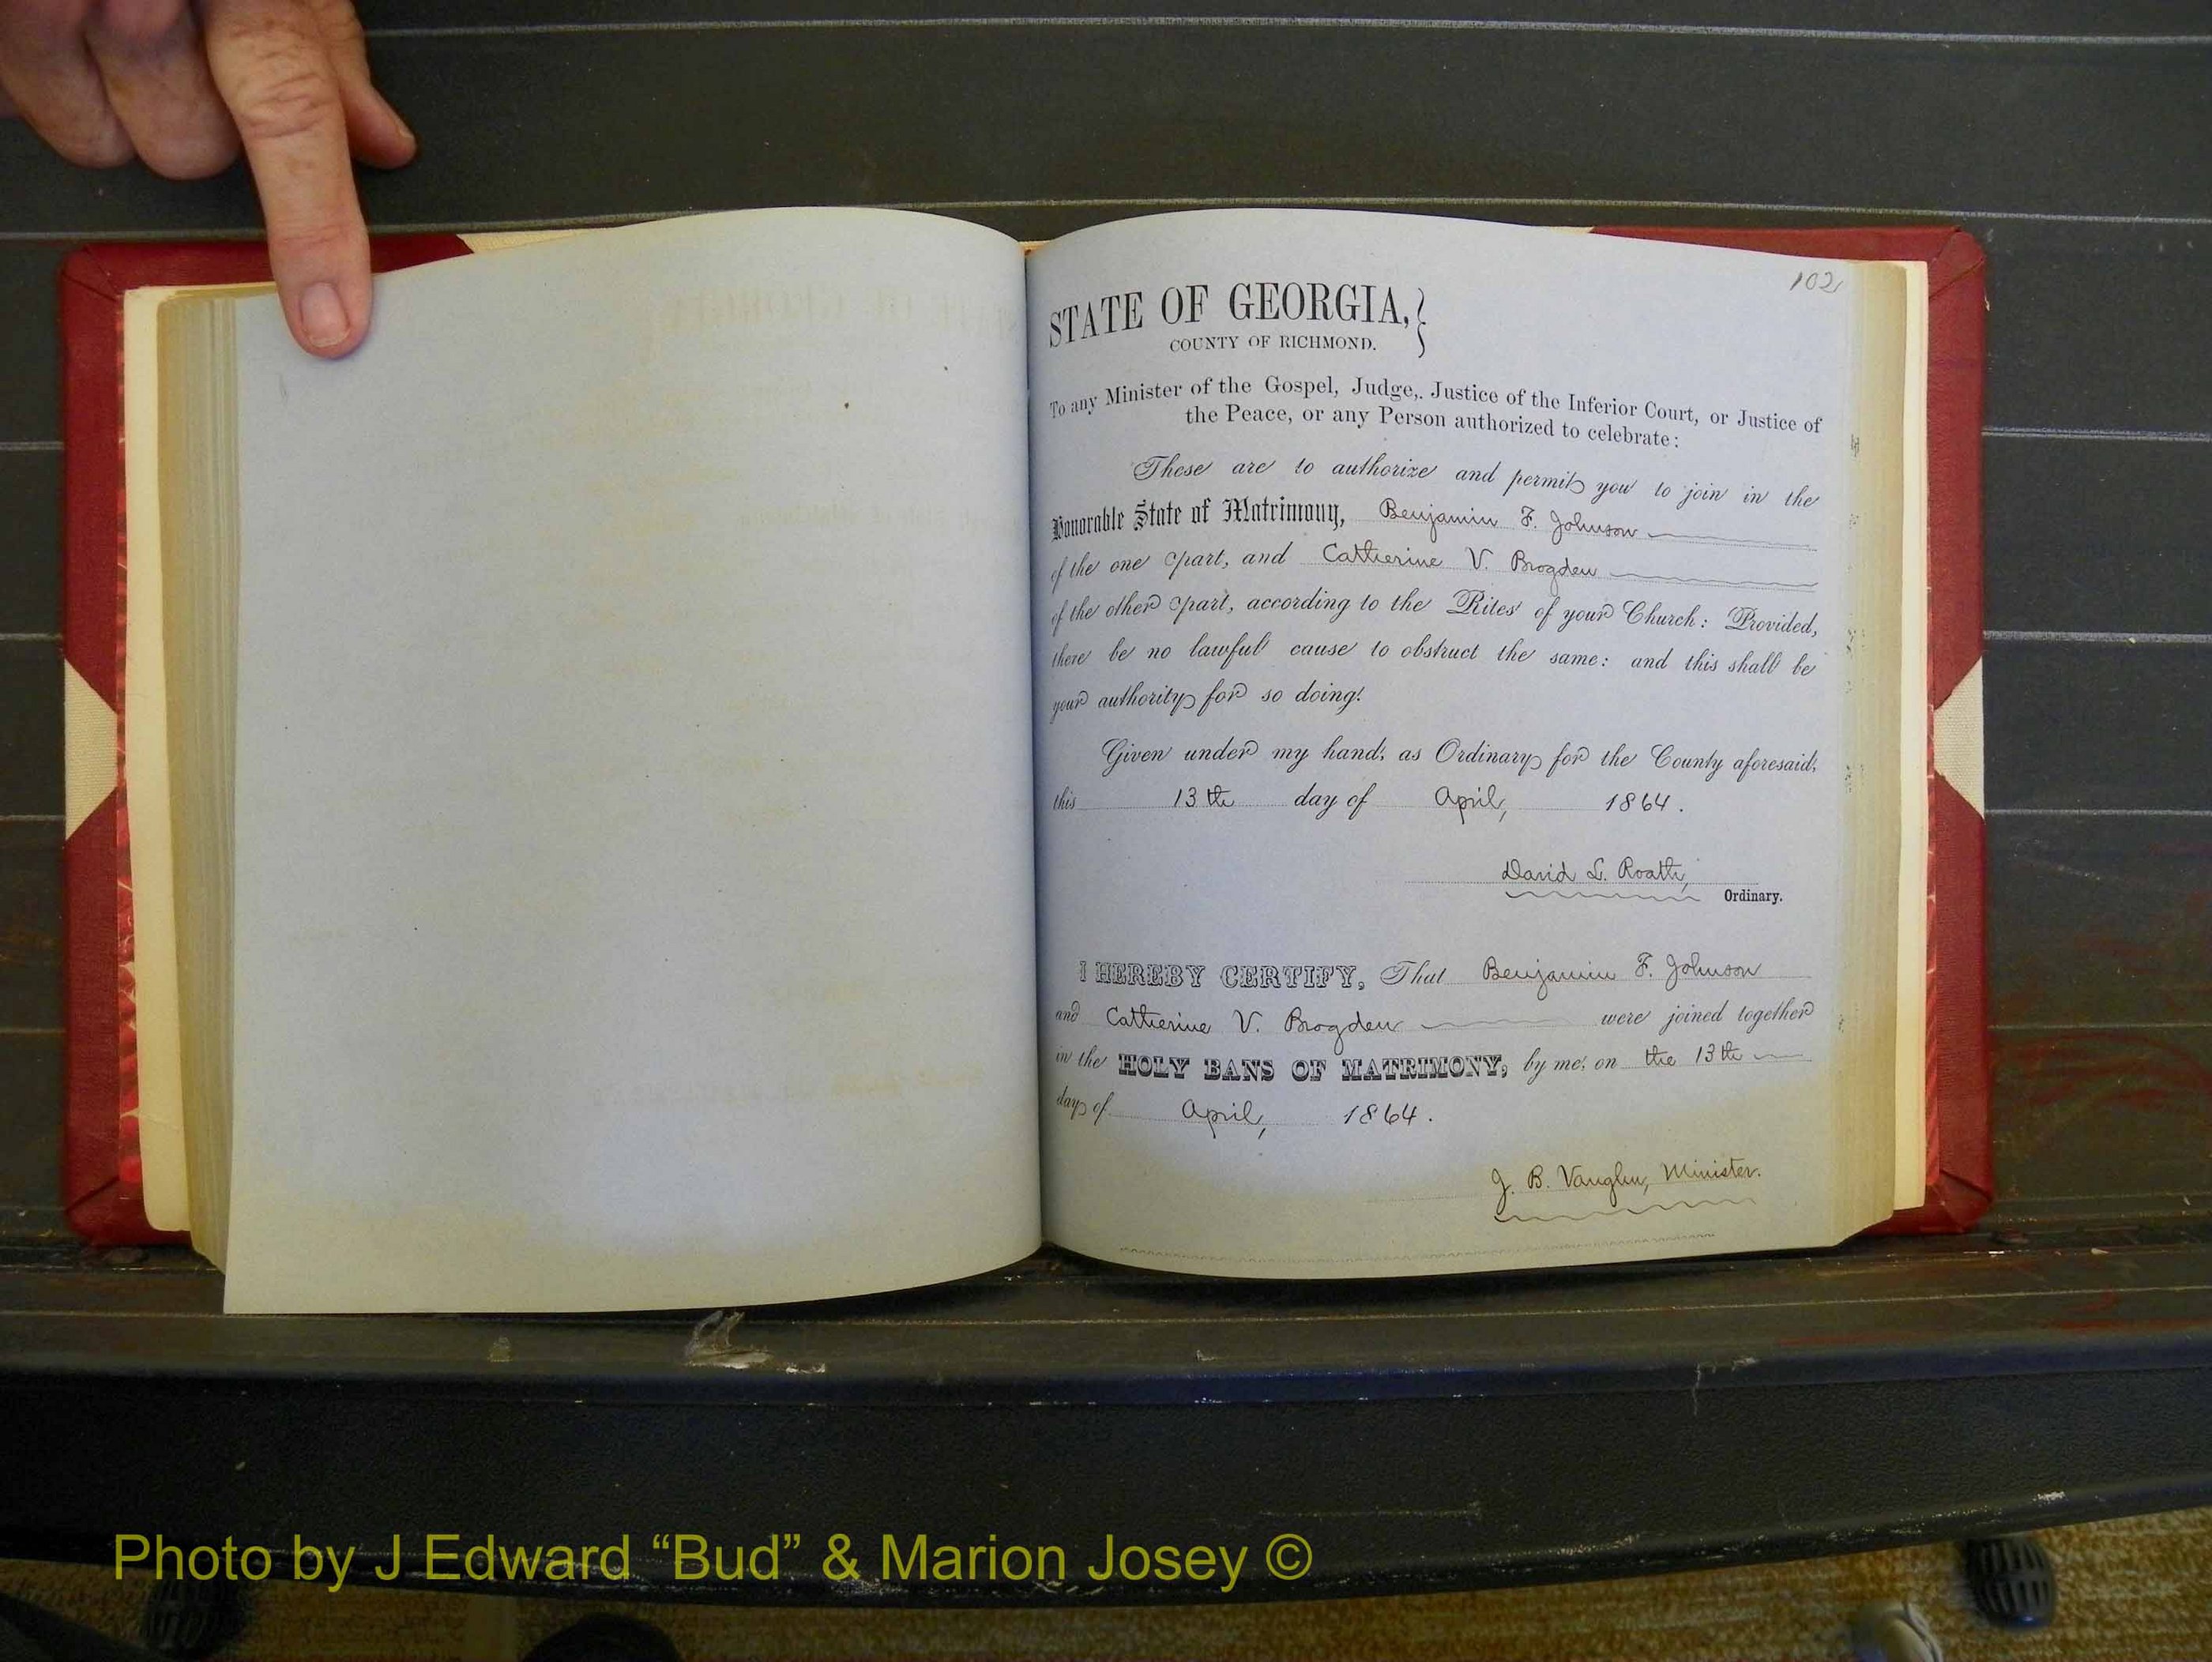 102
STATE OF GEORGIA,
COUNTY OF RICHMOND.
To any Minister of the Gospel, Judge, Justice of the Inferior Court, or Justice of
the Peace, or any Person authorized to celebrate:
These are to authorize and permit you to join in the
Honorable State of Matrimony, Benjamin F. Johnson
of the one part, and Catherine V. Brogden
of the other part, according to the Rites of your Church: Provided,
there be no lawful cause to obstruct the same: and this shall be
your authority for so doing.
Given under my hand, as Ordinary for the County aforesaid,
this 13th day of April, 1864.
David L. Roath,
Ordinary.
I HEREBY CERTIFY, That Benjamin F. Johnson
and Catherine V. Brogden were joined together
in the HOLY BANS OF MATRIMONY, by me, on the 13th
day of April, 1864.
J. B. Vaughn, Minister.
Photo by J Edward “Bud” & Marion Josey ©